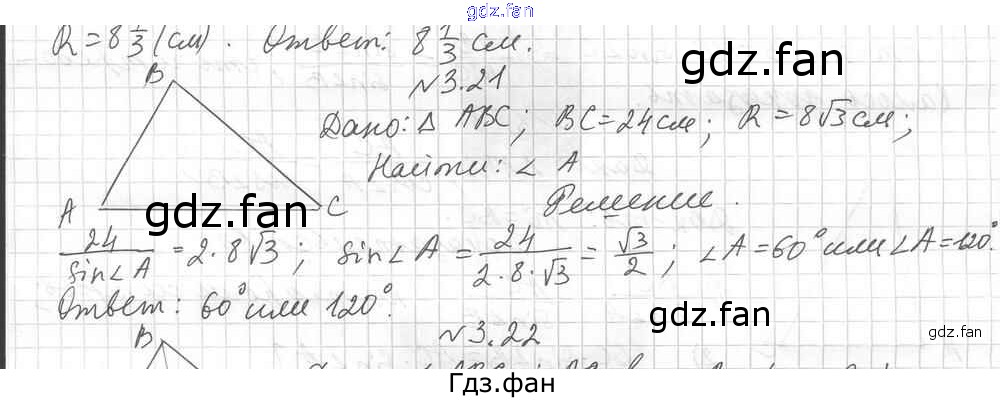 gdz.fan
R = 8 1/3 (см). Ответ: 8 1/3 см.
gdz.fan
B
№3.21
Дано: Δ ABC; BC = 24 см; R = 8√3 см;
Найти: ∠ A
A C
gdz.fan
Решение.
24/sin∠A = 2·8√3; sin∠A = 24/(2·8·√3) = √3/2; ∠A = 60° или ∠A = 120°.
Ответ: 60° или 120°.
gdz.fan
B
№3.22
gdz.fan
Гдз.фан